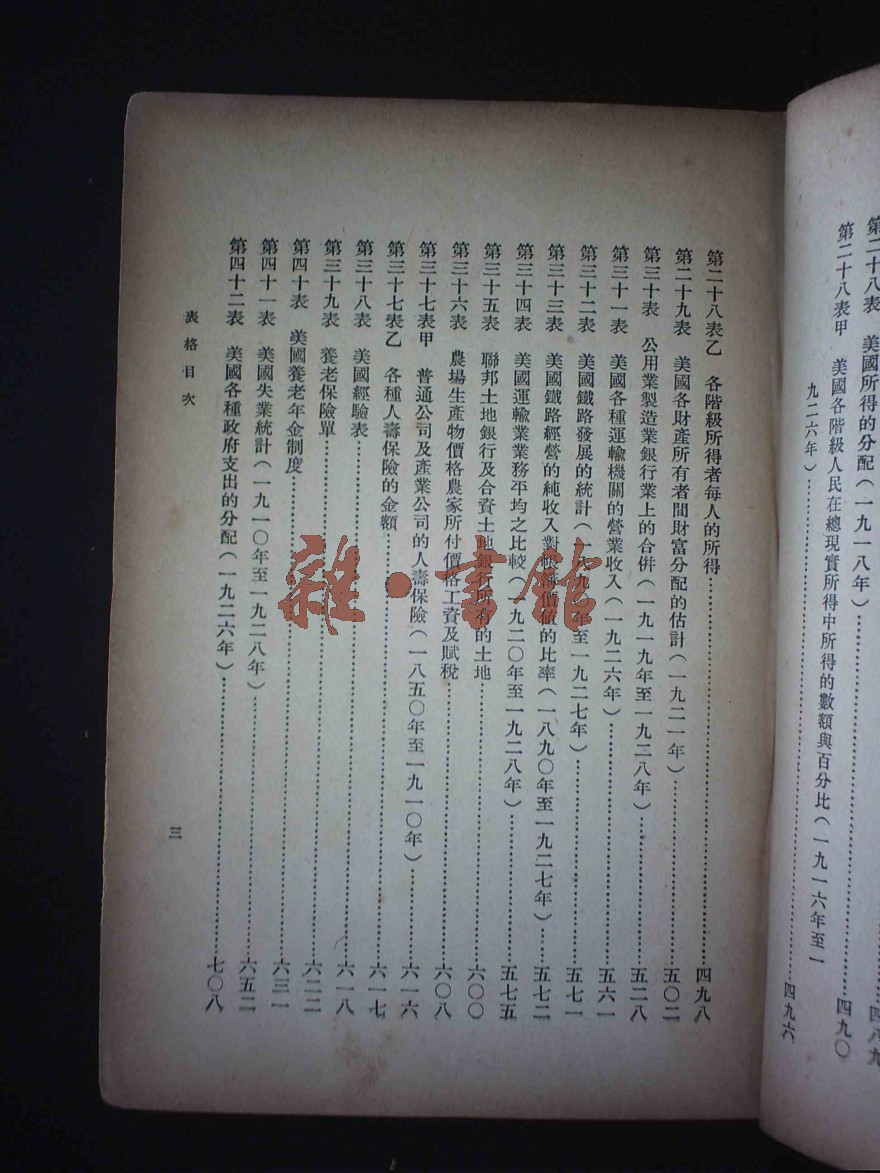 第二十八表 美國所得的分配(一九一八年)……四八九
第二十八表甲 美國各階級人民在總現實所得中所得的數額與百分比(一九一六年至一
九二六年)……四九〇
四九六
第二十八表乙 各階級所得者每人的所得……四九八
第二十九表 美國各財產所有者間財富分配的估計(一九二一年)……五〇二
第三十表 公用業製造業銀行業上的合併(一九一九年至一九二八年)……五二八
第三十一表 美國各種運輸機關的營業收入(一九二六年)……五六一
第三十二表 美國鐵路發展的統計(一八九〇年至一九二七年)……五七一
第三十三表 美國鐵路經營的純收入對帳簿價值的比率(一八九〇年至一九二七年)……五七二
第三十四表 美國運輸業業務平均之比較(一九二〇年至一九二八年)……五七五
第三十五表 聯邦土地銀行及合資土地銀行所有的土地……六〇〇
第三十六表 農場生產物價格農家所付價格工資及賦稅……六〇八
第三十七表甲 普通公司及產業公司的人壽保險(一八五〇年至一九一〇年)……六一六
第三十七表乙 各種人壽保險的金額……六一七
第三十八表 美國經驗表……六一八
第三十九表 養老保險單……六二二
第四十表 美國養老年金制度……六三一
第四十一表 美國失業統計(一九一〇年至一九二八年)……六五二
第四十二表 美國各種政府支出的分配(一九二六年)……七〇八
表格目次
三
雜·書館